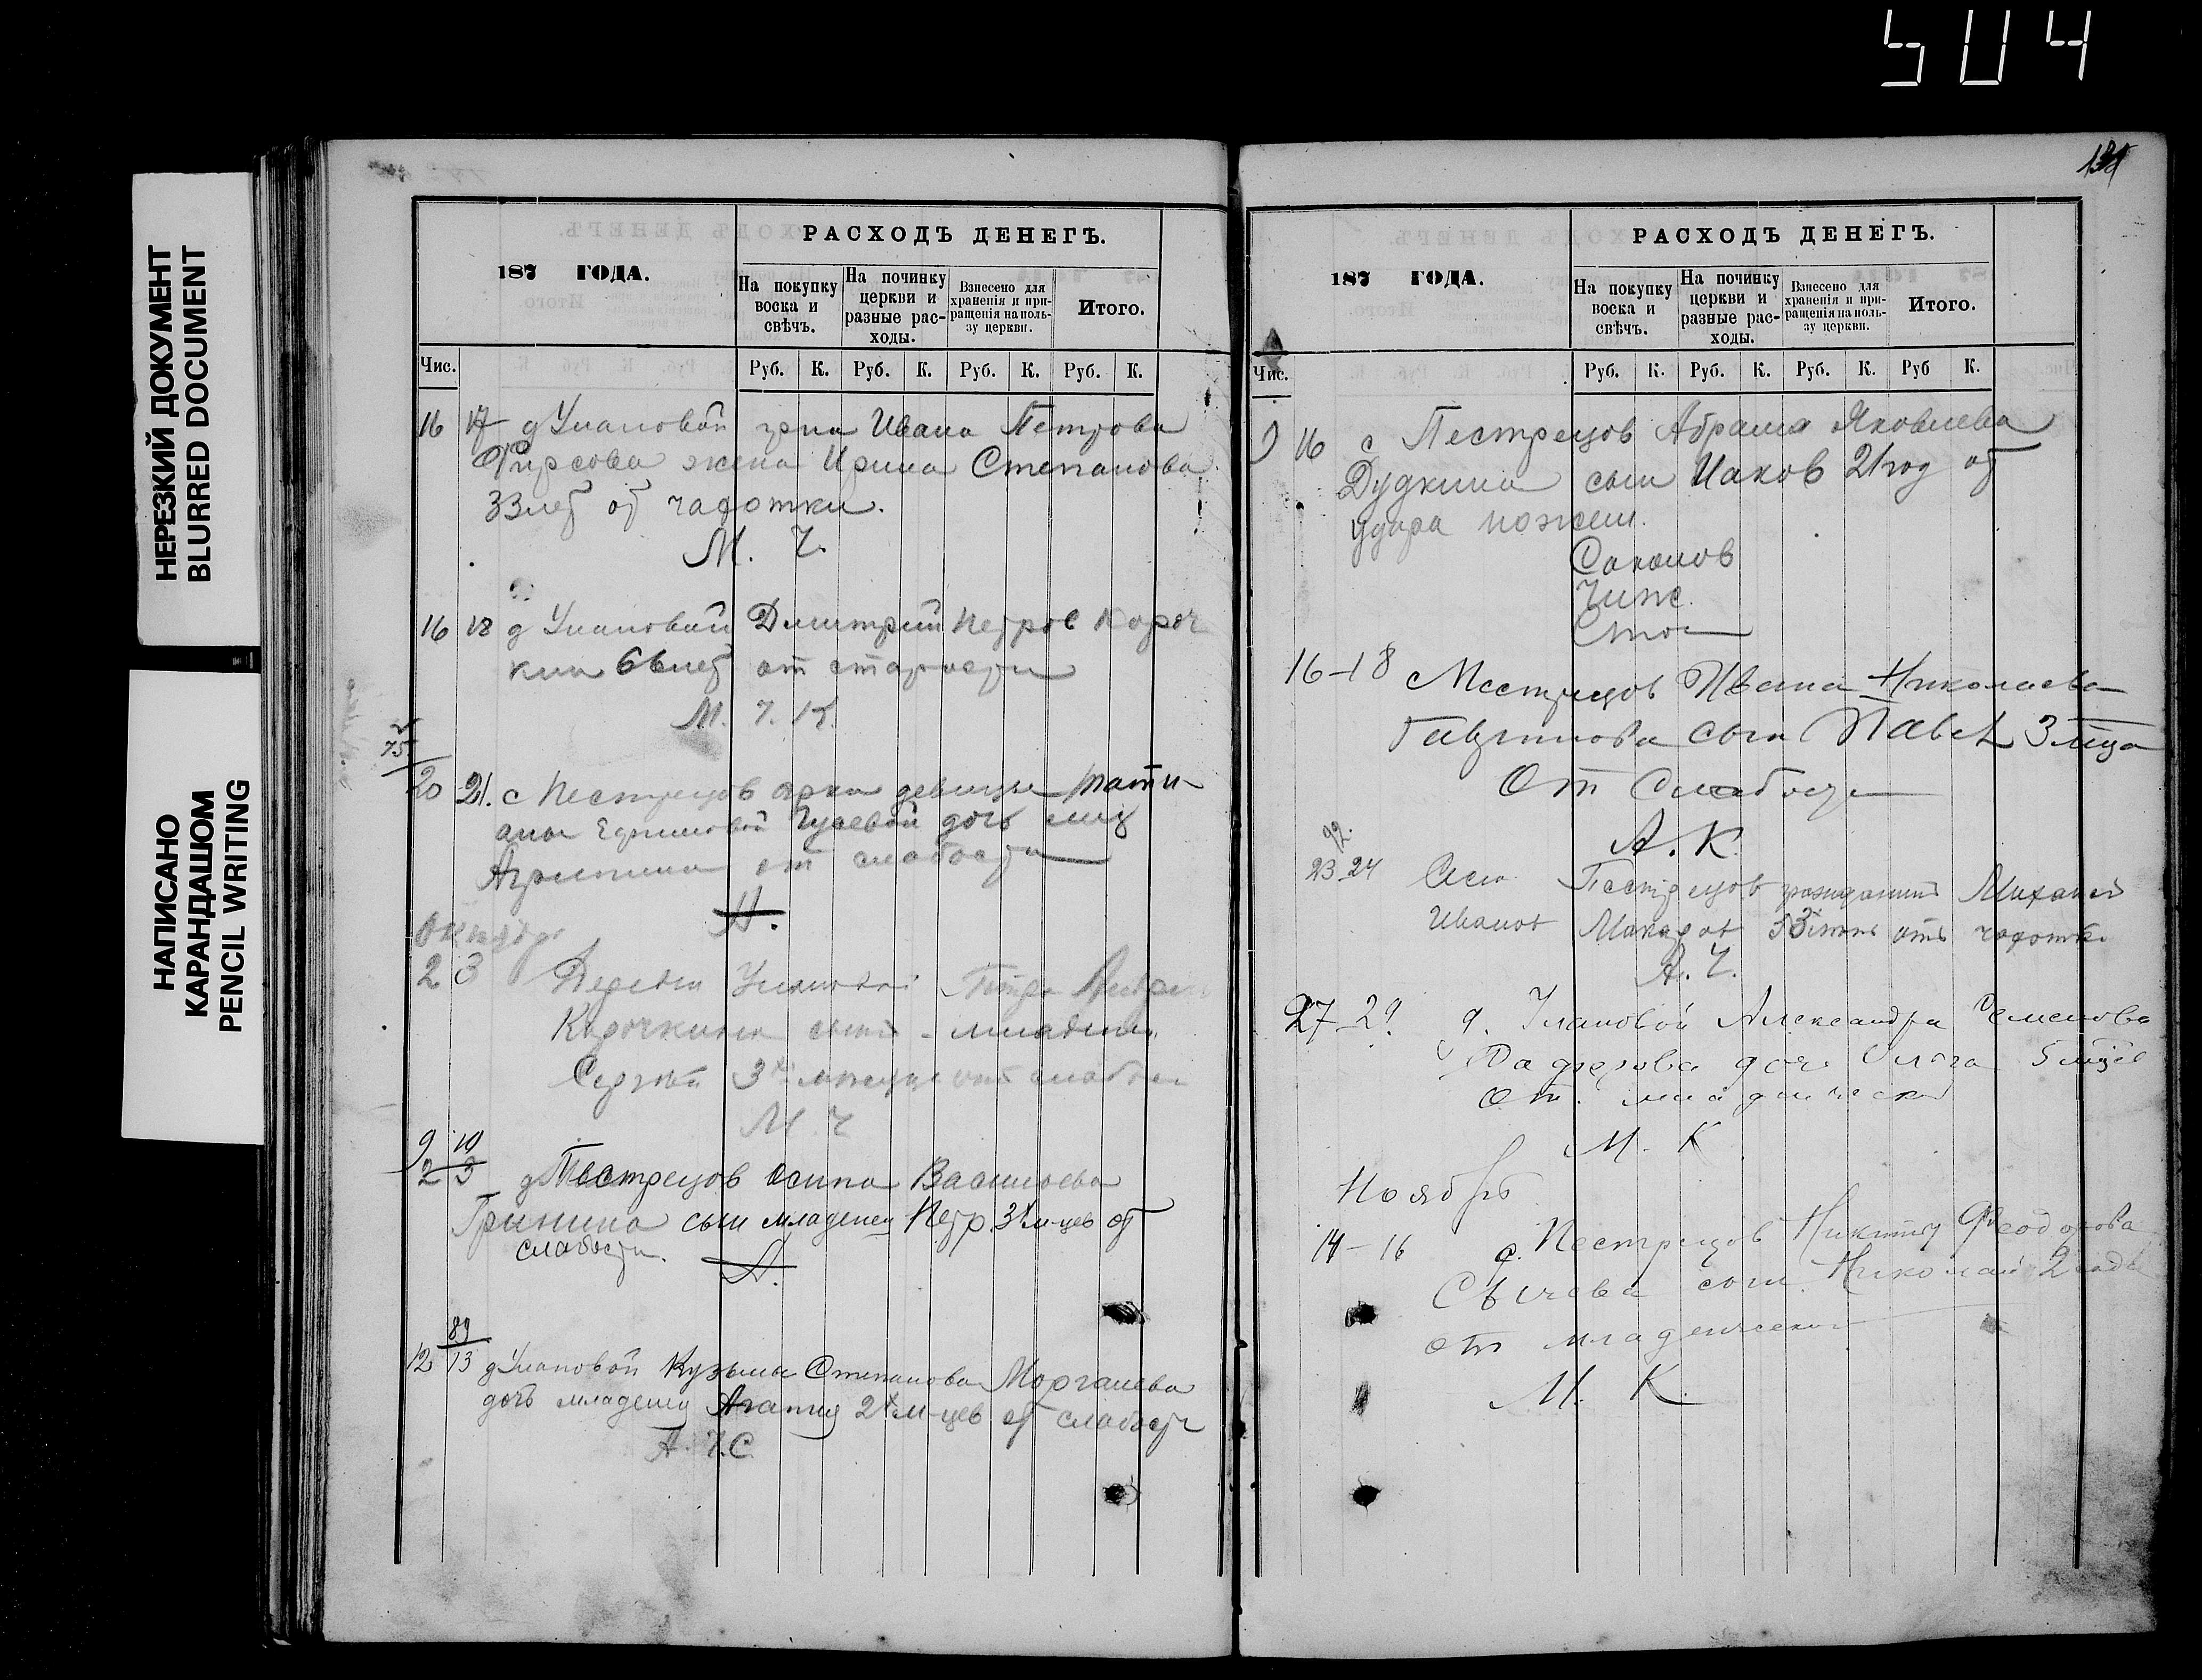 504
НЕРЕЗКИЙ ДОКУМЕНТ
BLURRED DOCUMENT
НАПИСАНО
КАРАНДАШОМ
PENCIL WRITING
187 ГОДА.
РАСХОДЪ ДЕНЕГЪ.
На покупку воска и свѣчъ.
На починку церкви и разные рас-ходы.
Взнесено для храненія и при-ращенія на поль-зу церкви.
Итого.
Чис. Руб. К. Руб. К. Руб. К. Руб. К.
16 17 д Улановой Ивана Петрова
Фирсова жена Ирина Степанова
33 лет от чахотки.
М. Ч.
16 18 д Улановой Димитрий Петров Короч
кин 66 лет от старости
М. Ч. К.
75
20 21. с Пестрецов девицы Тати-
аны Ефимовой Гусевой дочь
Агрипина от слабости
А.
Октябрь
2 3 Деревни Улановой Петра
Корочкина сынъ младенец
Сергей 3х месяца от слабости
М. Ч
9 10
2 3 д Пестрецов Осипа Васильева
Гринина сын младенец Петр 3х м-цев от
слабости.
А.
89
12 13 д Улановой Кузьмы Степанова Моргачева
дочь младенец Агапия 2х м-цев от слабости
А. Ч. С
187 ГОДА.
РАСХОДЪ ДЕНЕГЪ.
На покупку воска и свѣчъ.
На починку церкви и разные рас-ходы.
Взнесено для храненія и при-ращенія на поль-зу церкви.
Итого.
Чис. Руб. К. Руб. К. Руб. К. Руб К.
16 с Пестрецов Абрама Яковлева
Дудкина сын Иаков 21 год от
удара ножем.
Соколов
16-18 с Пестрецов Ивана Николаева
сын Павел 3 м-ца
От слабости
А. К.
92.
23 24 Села Пестрецов гражданин Михаил
Иванов Макаров 33 от чахотки
А. Ч.
27-29 д. Улановой Александра Семенова
дочь Ольга 5 м-цев
от младенческой
М. К
Ноябрь
14-16 с. Пестрецов Никиты Феодорова
Сычева сын Николай 2 года
от младенческой
М. К.